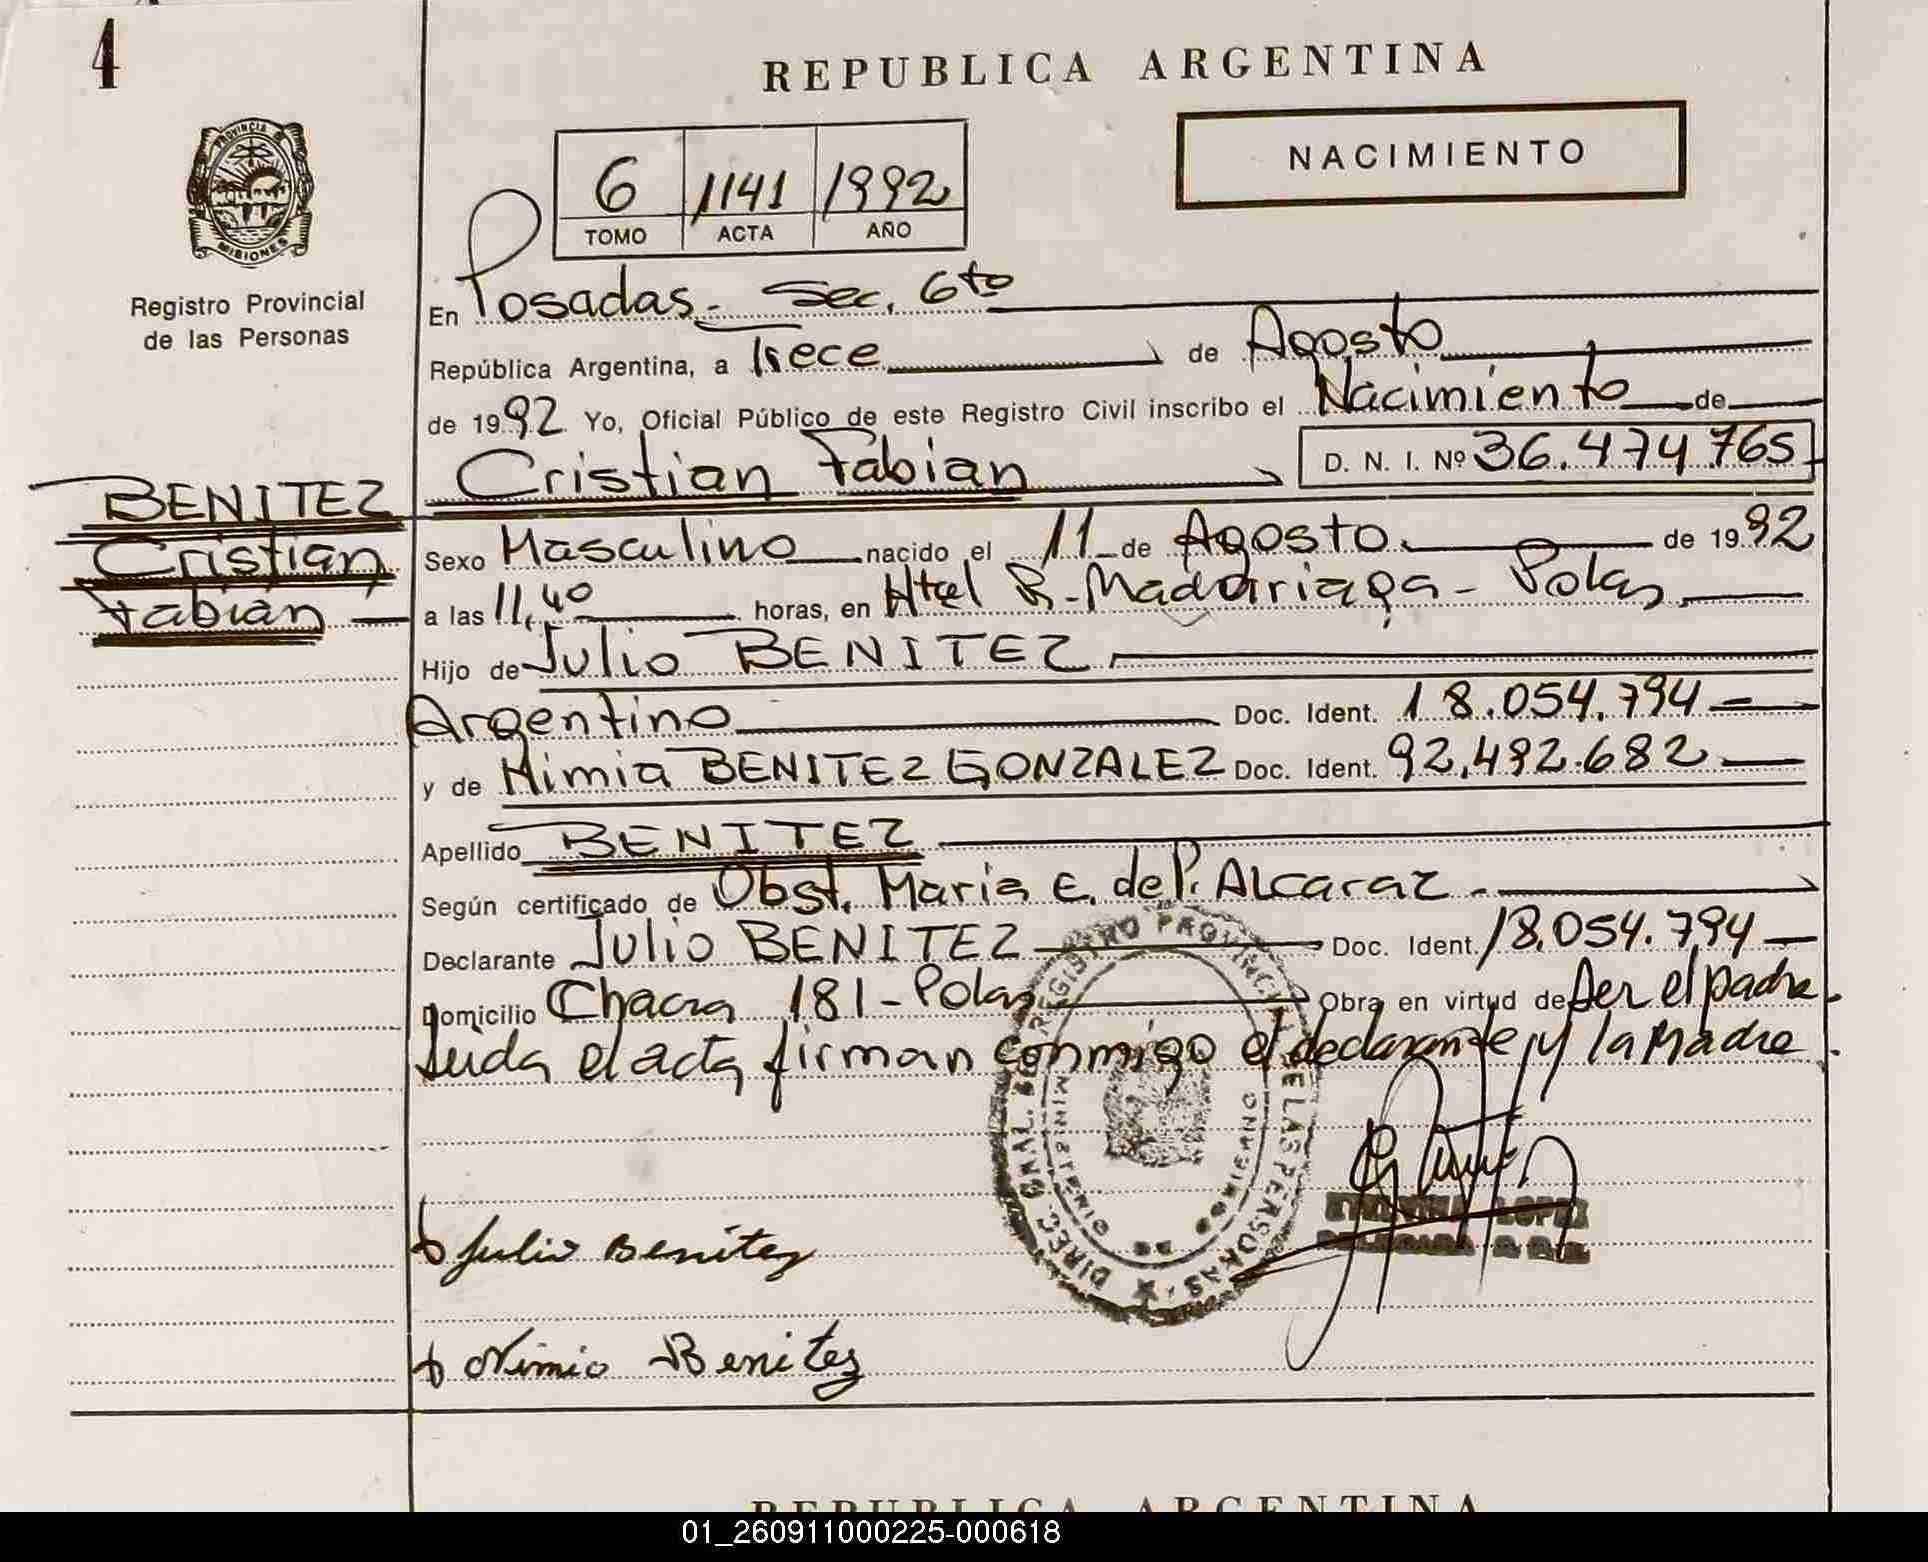 4
REPUBLICA ARGENTINA
NACIMIENTO
PROVINCIA DE
MISIONES
Registro Provincial
de las Personas
6 1141 1992
TOMO ACTA AÑO
En Posadas - Sec. 6to
República Argentina, a Trece de Agosto
de 1992 Yo, Oficial Público de este Registro Civil inscribo el Nacimiento de
Cristian Fabian D. N. I. Nº 36.474.765
BENITEZ
Cristian
Fabian
Sexo Masculino nacido el 11 de Agosto de 1992
a las 11,40 horas, en Htal R. Madariaga - Pdas.
Hijo de Julio BENITEZ
Argentino Doc. Ident. 18.054.794
y de Nimia BENITEZ GONZALEZ Doc. Ident. 92.492.682
Apellido BENITEZ
Según certificado de Obst. Maria E. de P. ALCaraz
Declarante Julio BENITEZ Doc. Ident. 18.054.794
Domicilio Chacra 181 - Pdas Obra en virtud de ser el padre
Leida el acta firman conmigo el declarante y la Madre
DIREC. GRAL. DE REGISTRO PROVINCIAL DE LAS PERSONAS
MINISTERIO DE GOBIERNO
LOPEZ
Julio Benitez
Nimia Benitez
REPUBLICA ARGENTINA
01_260911000225-000618